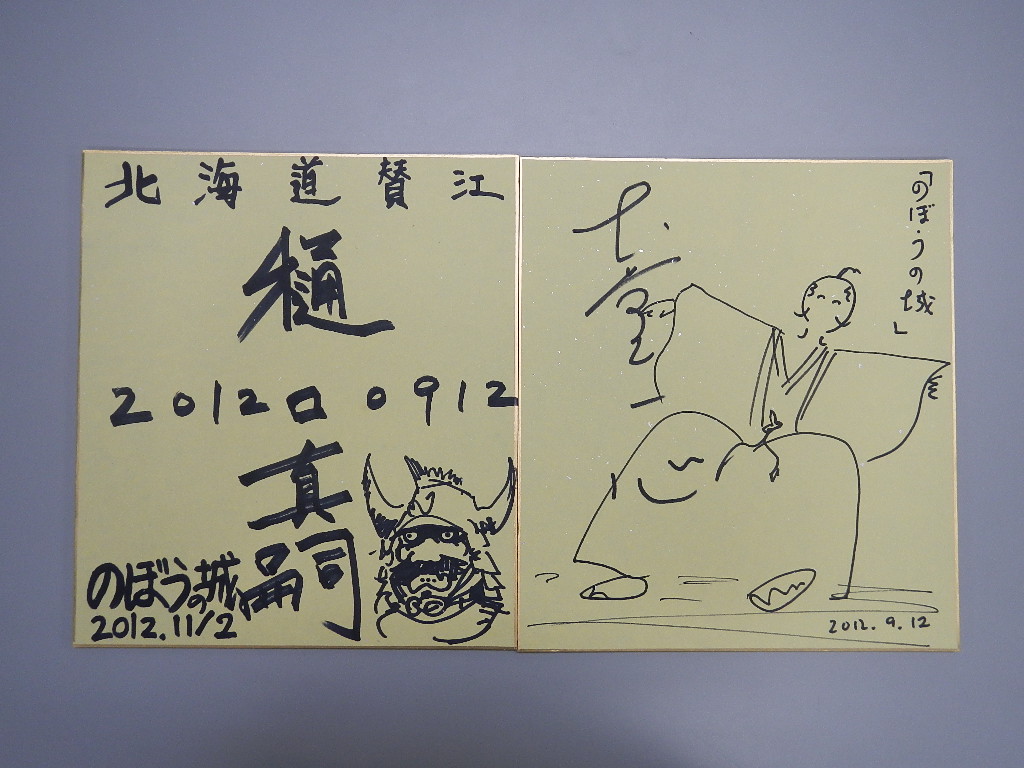 北海道賛江
樋
2012口0912
真
嗣
のぼうの城
2012.11/2
「のぼうの城」
犬童
2012.9.12